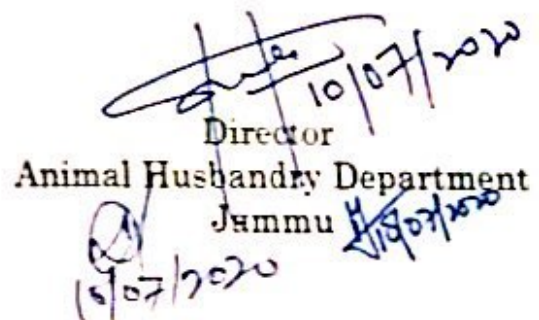 10/07/2020
Director
Animal Husbandry Department
Jammu
10/07/2020
10/07/2020